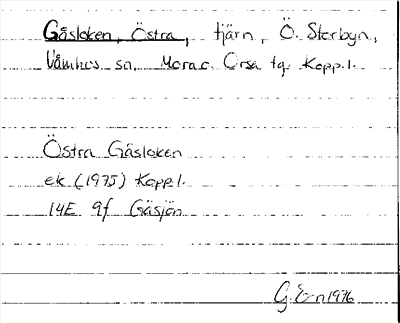 Gåsloken, Östra, tjärn, Ö. Storbyn,
Våmhus sn. Mora o. Orsa tg. Kopp.l.
Östra Gåsloken
ek (1975) Kopp.l.
14E 9f Gåsjön
G. E-n 1976